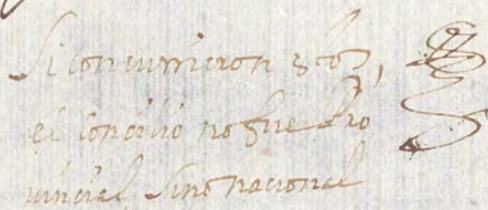 Si concurrieron
el Concilio no fue Pro
uincial Sino nacional